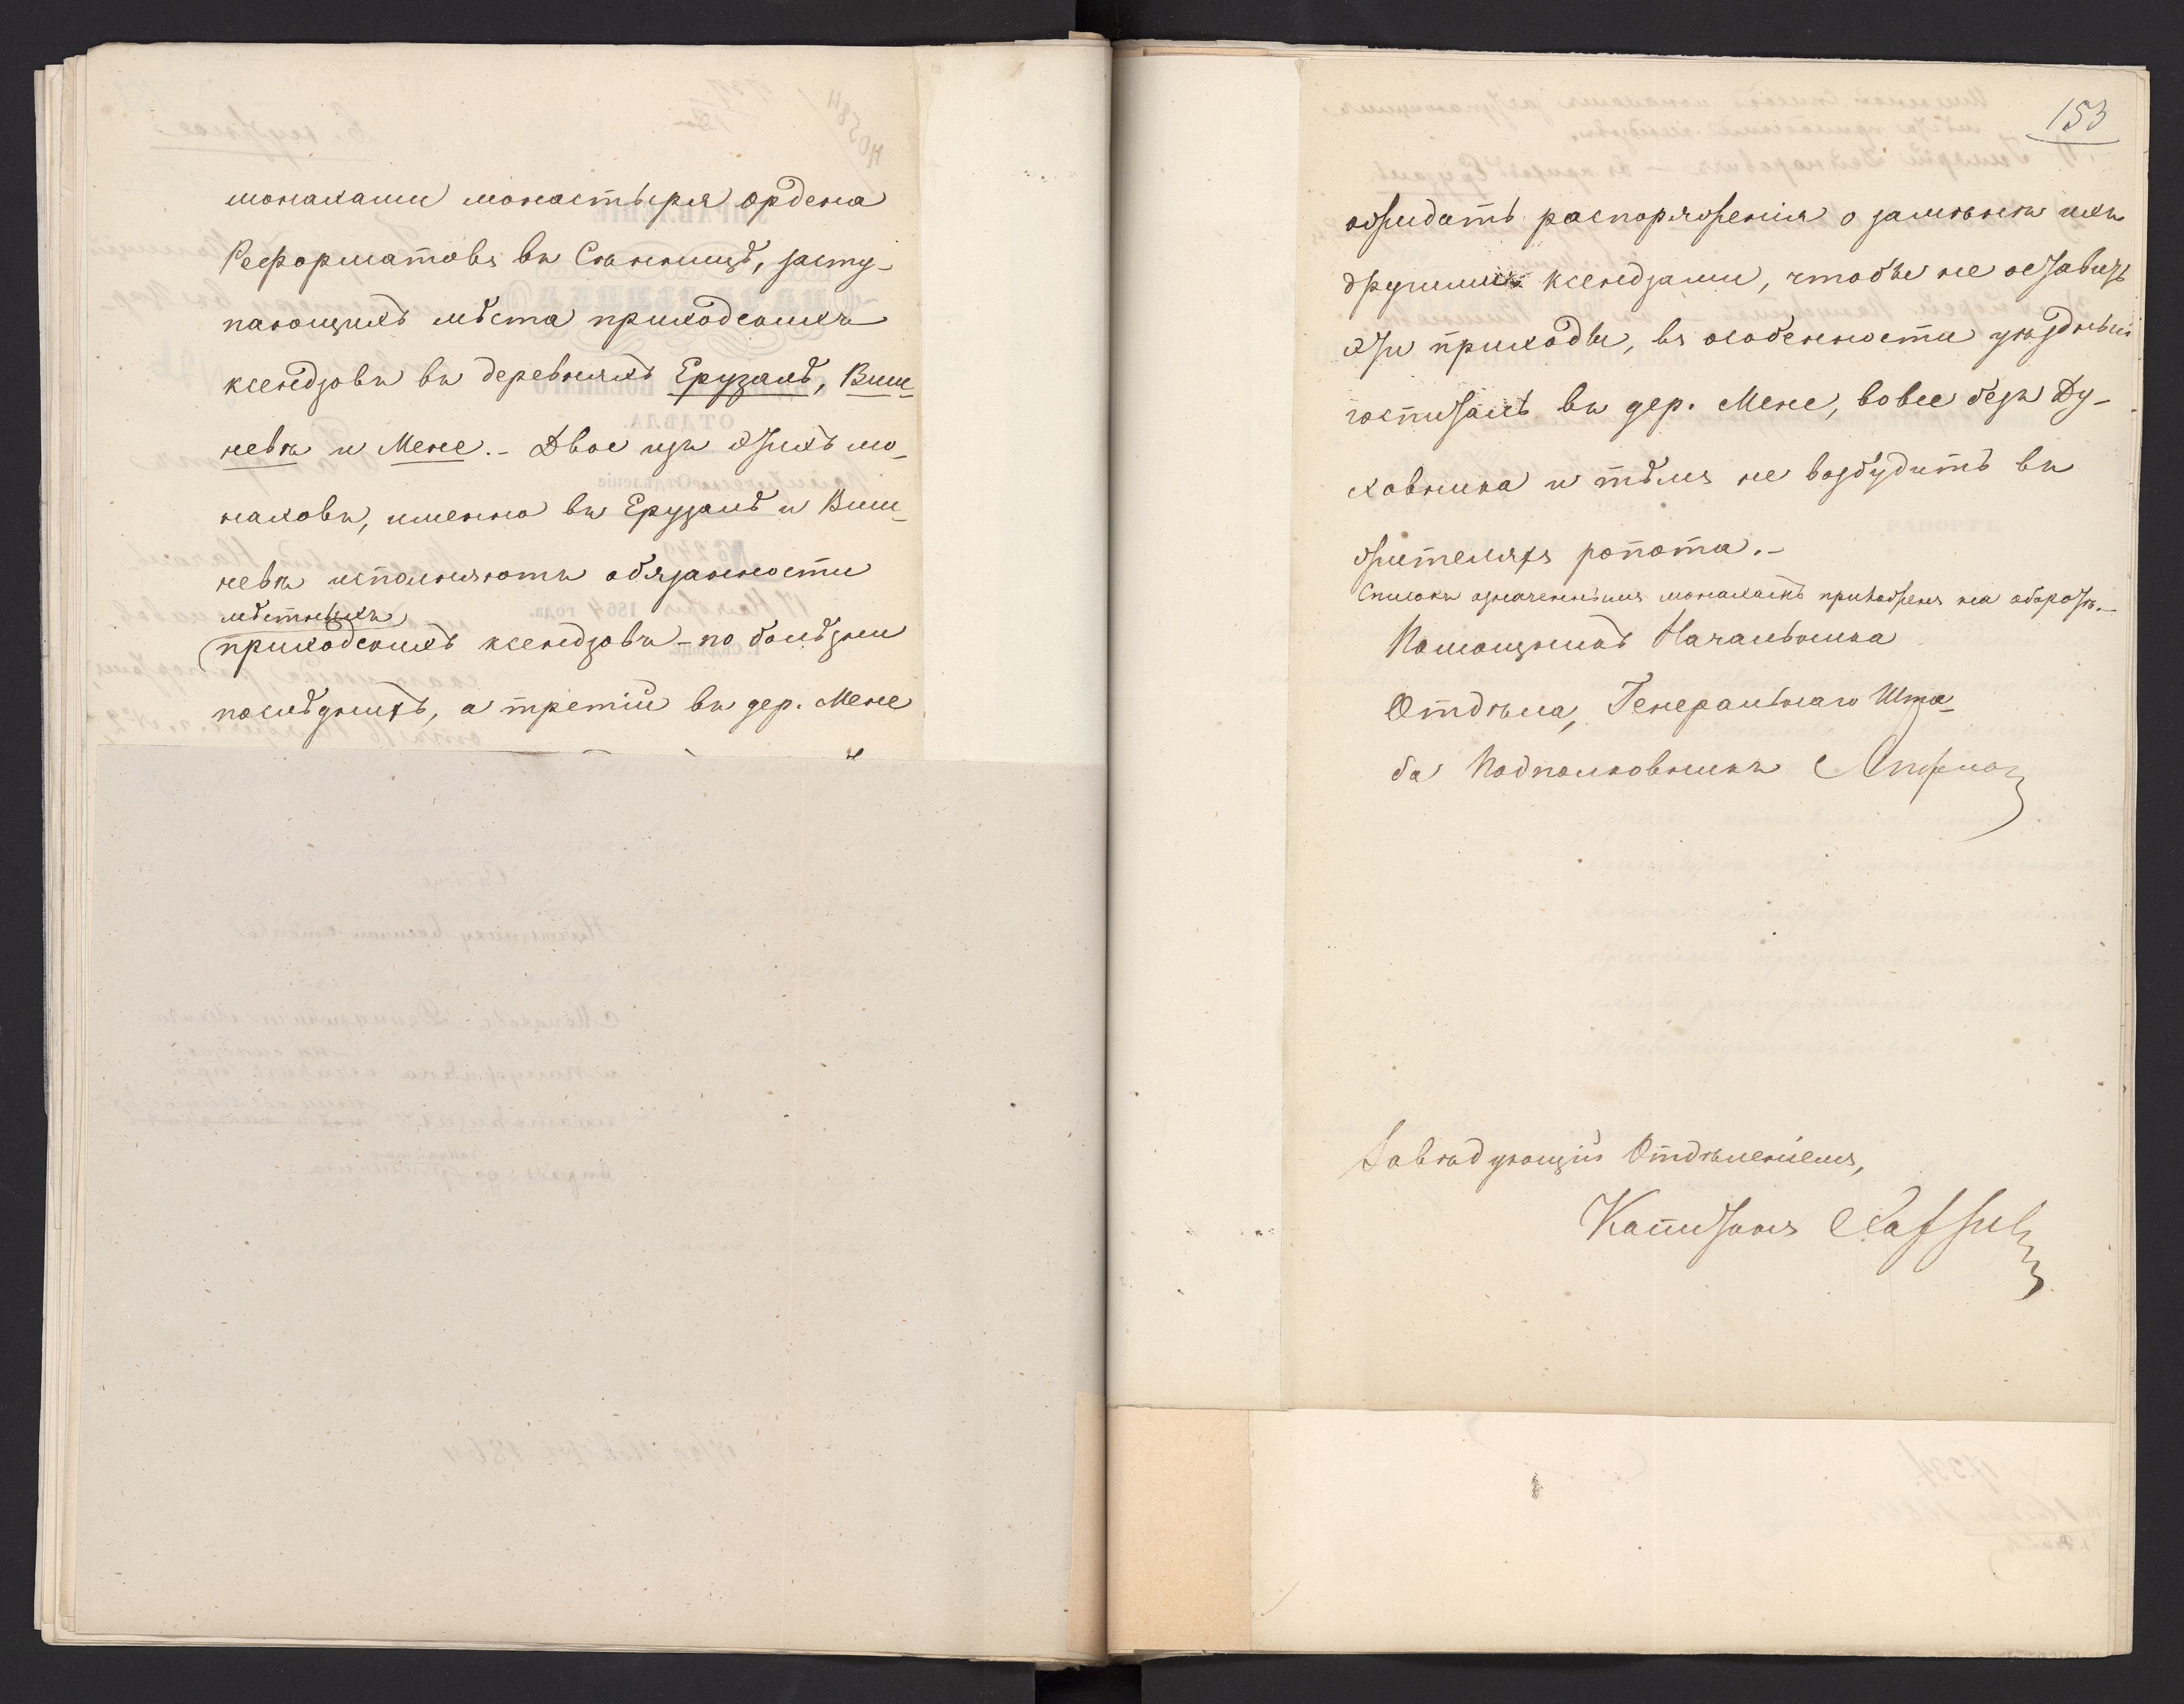 монахами монастыря ордена
Реформатовъ въ Стенницѣ, засту-
пающихъ мѣста приходскихъ
ксендзовъ въ деревняхъ Ерузалѣ, Виш-
невѣ и Мене.- Двое изъ этихъ мо-
наховъ, именно въ Ерузалѣ и Виш-
невѣ исполняютъ обязанности
мѣстныхъ
приходскихъ ксендзовъ - по болѣзни
послѣднихъ, а третiй въ дер. Мене
153
ожидать распоряженiя о замѣнѣ ихъ
другими ксендзами, чтобы не оставить
эти приходы, въ особенности уѣздный
госпиталь въ дер. Мене, вовсе безъ Ду-
ховника и тѣмъ не возбудить въ
жителяхъ ропота.-
Списокъ означеннымъ монахамъ приложенъ на оборотѣ.-
Помощникъ Начальника
Отдѣла, Генеральнаго Шта-
ба Подполковникъ
Завѣдующiй Отдѣленiемъ,
Капитанъ